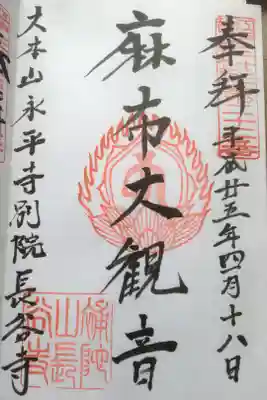 奉拝
平成廿五年四月十八日
麻布大観音
大本山永平寺別院長谷寺